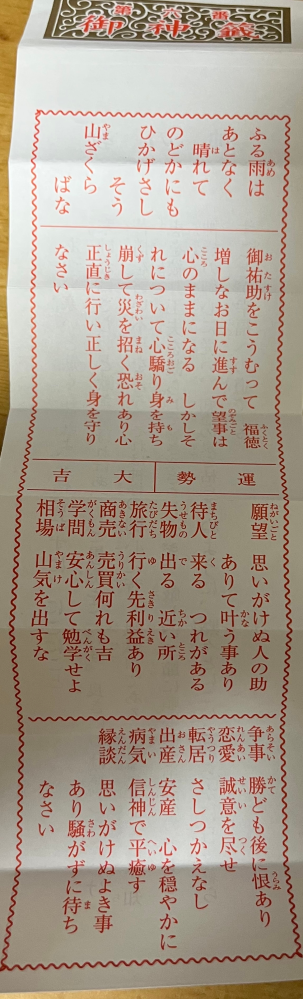 第六番
御神籤
ふる雨は
あとなく
晴れて
のどかにも
ひかげさし
そう
山ざくら
ばな
御祐助をこうむって 福徳
増しなお日に進んで望事は
心のままになる しかしそ
れについて心驕り身を持ち
崩して災を招く恐れあり心
正直に行い正しく身を守り
なさい
運勢 大吉
願望 思いがけぬ人の助
ありて叶う事あり
待人 来る つれがある
失物 出る 近い所
旅行 行く先利益あり
商売 売買何れも吉
学問 安心して勉学せよ
相場 山気を出すな
争事 勝ども後に恨あり
恋愛 誠意を尽せ
転居 さしつかえなし
出産 安産 心を穏やかに
病気 信神で平癒す
縁談 思いがけぬよき事
あり騒がずに待ち
なさい